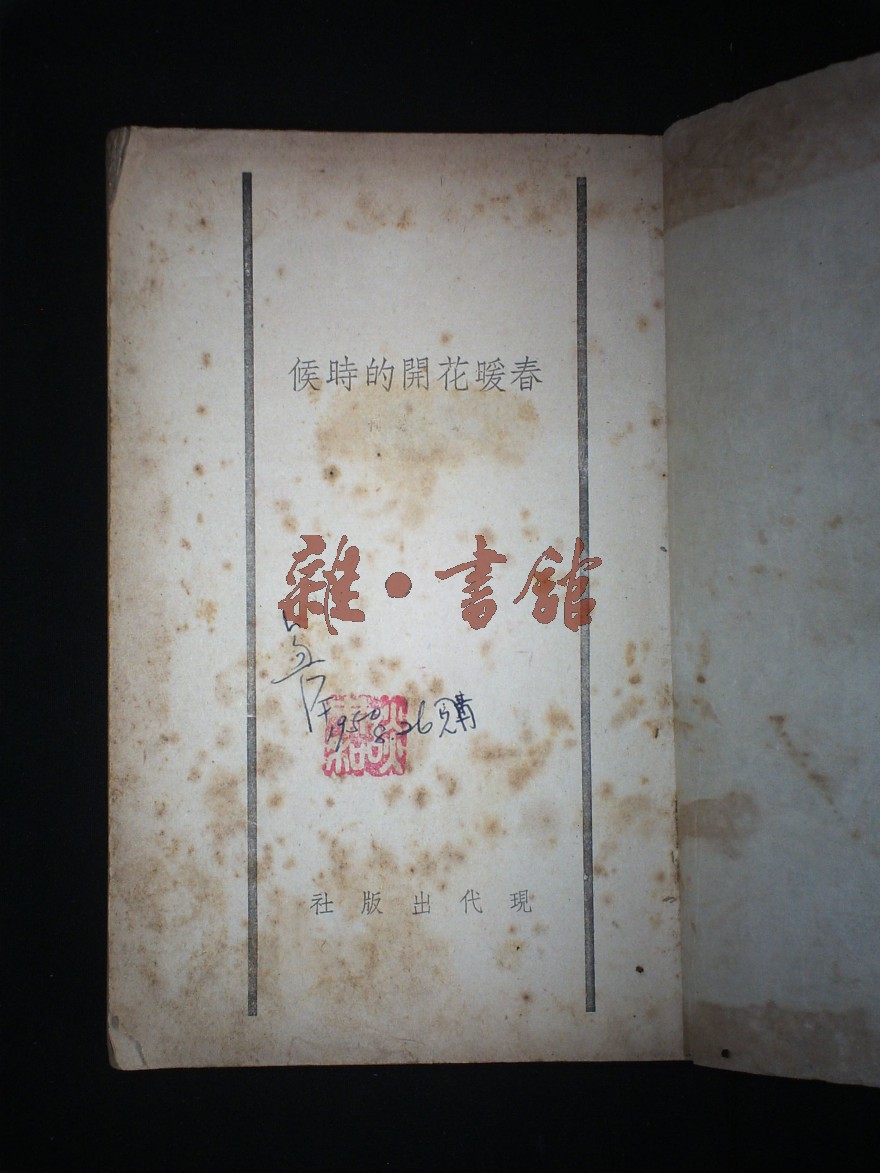 春暖花開的時候
雜·書館
1950
8.26購
現代出版社